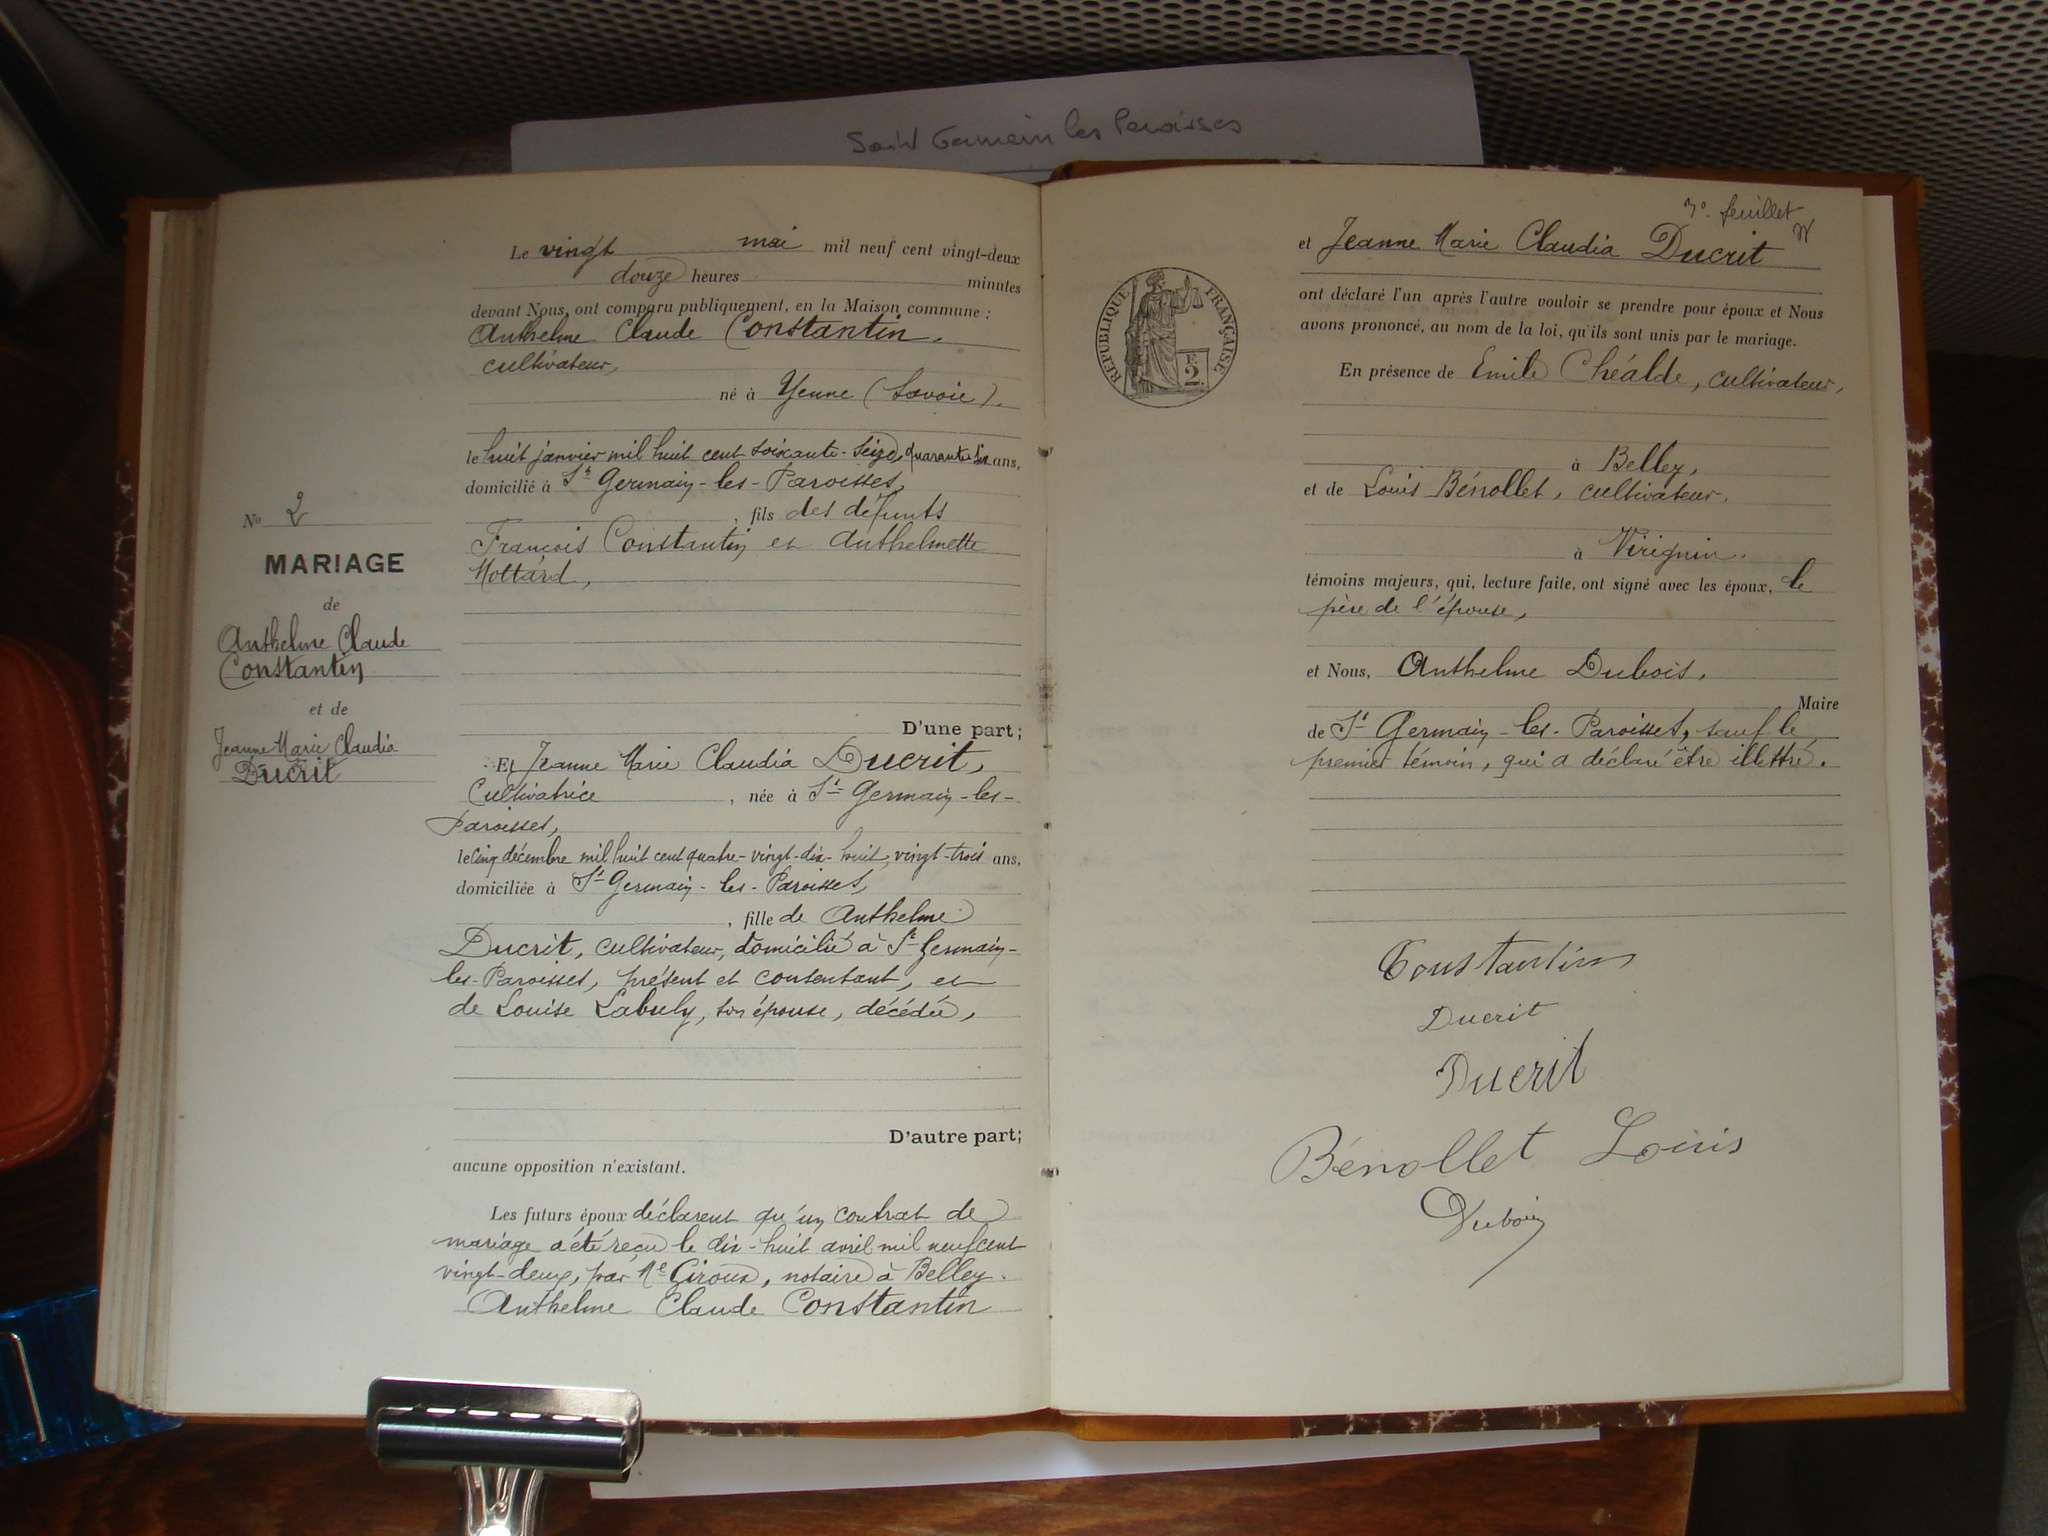 Saint Germain les Paroisses
Le vingt mai mil neuf cent vingt-deux
douze heures minutes
devant Nous, ont comparu publiquement, en la Maison commune :
Anthelme Claude Constantin,
cultivateur,
né à Yenne (Savoie).
le huit janvier mil huit cent soixante-seize, quarante six ans,
domicilié à St Germain-les-Paroisses,
, fils des défunts
François Constantin et Anthelmette
Mottard,
No 2
MARIAGE
de
Anthelme Claude
Constantin
et de
Jeanne Marie Claudia
Ducrit
D'une part;
Et Jeanne Marie Claudia Ducrit,
Cultivatrice , née à St Germain-les-
Paroisses,
le cinq décembre mil huit cent quatre-vingt-dix-huit, vingt-trois ans,
domiciliée à St Germain-les-Paroisses,
, fille de Anthelme
Ducrit, cultivateur, domicilié à St Germain-
les-Paroisses, présent et consentant, et
de Louise Labuly, son épouse, décédée,
D'autre part;
aucune opposition n'existant.
Les futurs époux déclarent qu'un contrat de
mariage a été reçu le dix-huit avril mil neuf cent
vingt-deux, par Me Giroux, notaire à Belley.
Anthelme Claude Constantin
feuillet
et Jeanne Marie Claudia Ducrit
ont déclaré l'un après l'autre vouloir se prendre pour époux et Nous
avons prononcé, au nom de la loi, qu'ils sont unis par le mariage.
RÉPUBLIQUE FRANÇAISE
2 F.
En présence de Emile Chéalde, cultivateur,
à Belley,
et de Louis Bénollet, cultivateur,
à Virignin.
témoins majeurs, qui, lecture faite, ont signé avec les époux, le
père de l'épouse,
et Nous, Anthelme Dubois,
Maire
de St Germain-les-Paroisses, sauf le
premier témoin, qui a déclaré être illettré.
Constantin
Ducrit
Ducrit
Bénollet Louis
Dubois